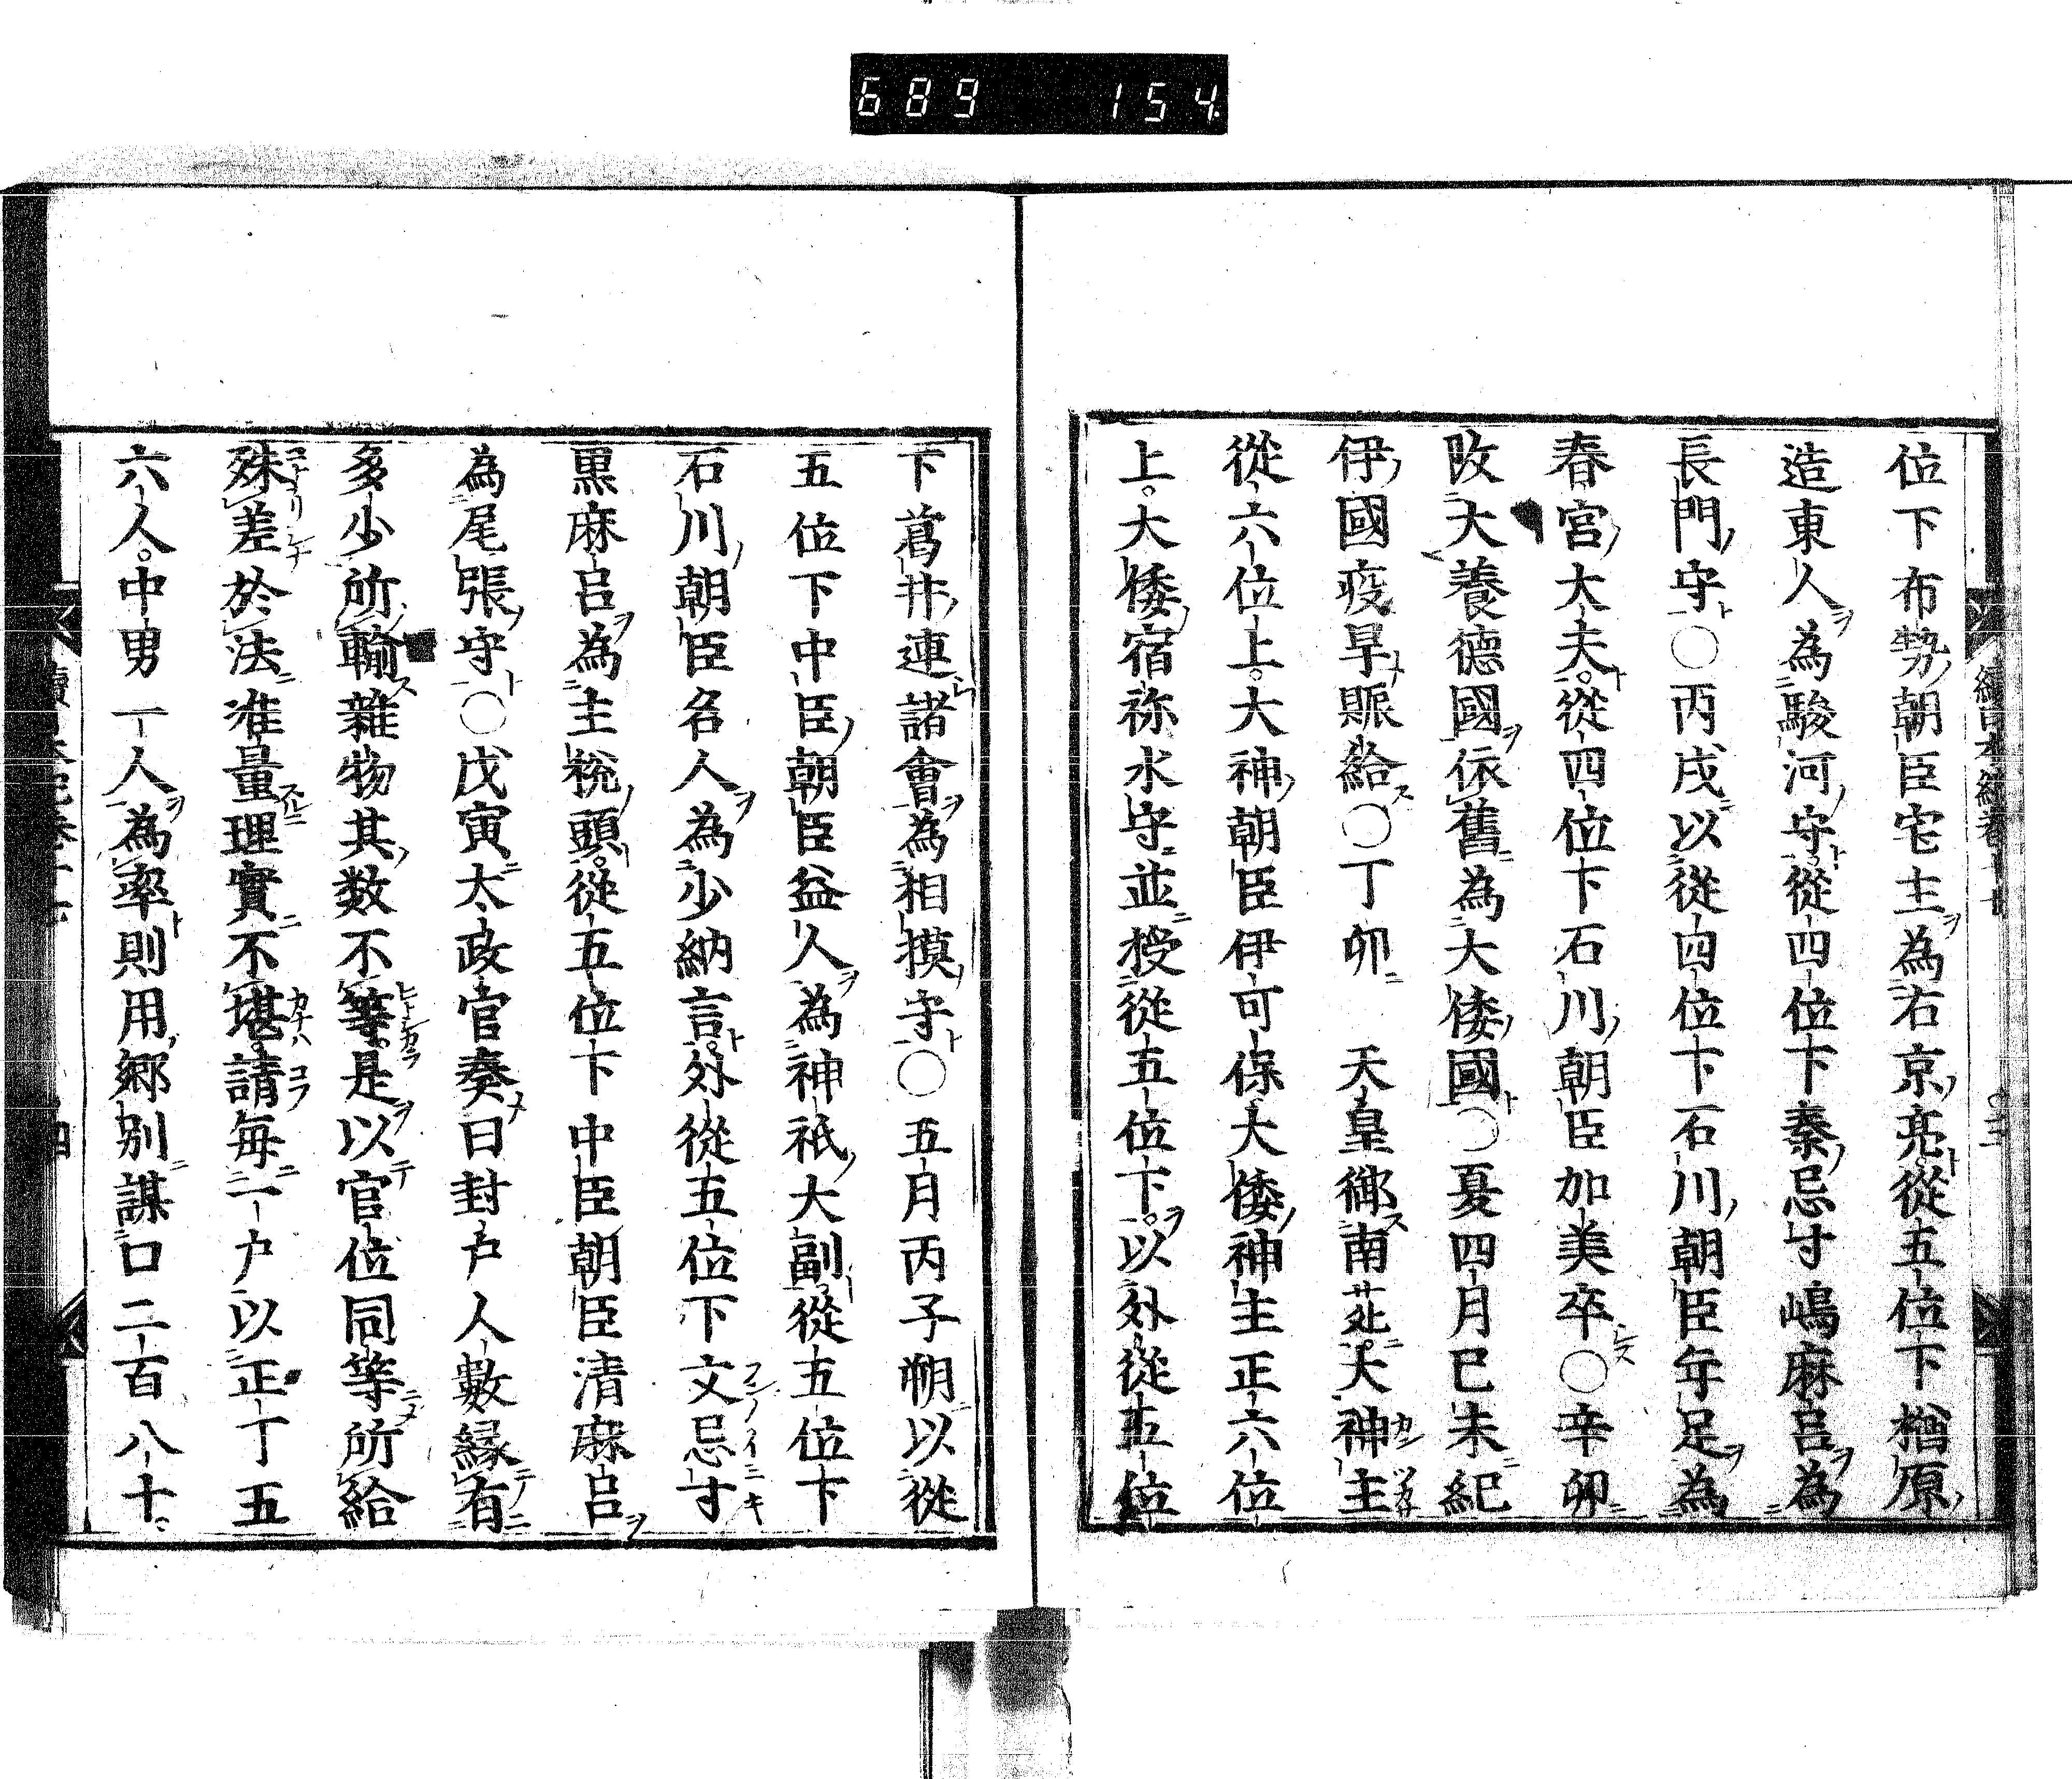 689 154
位下布勢朝臣宅主為右京亮從五位下楢原
造東人為駿河守從四位下秦忌寸嶋麻呂為
長門守○丙戌以從四位下石川朝臣年足為
春宮大夫從四位下石川朝臣加美卒○辛卯
改大養德國依舊為大倭國○夏四月己未紀
伊國疫旱賑給○丁卯 天皇御南苑大神神主
從六位上大神朝臣伊可保大倭神主正六位
上大倭宿祢水守並授從五位下以外從五位
下葛井連諸會為相摸守○五月丙子朔以從
五位下中臣朝臣益人為神祇大副從五位下
石川朝臣名人為少納言外從五位下文忌寸
黒麻呂為主稅頭從五位下中臣朝臣清麻呂
為尾張守○戊寅太政官奏曰封戸人數縁有
多少所輸雜物其数不等是以官位同等所給
殊差於法准量理實不堪請毎一戸以正丁五
六人中男一人為率則用郷別課口二百八十